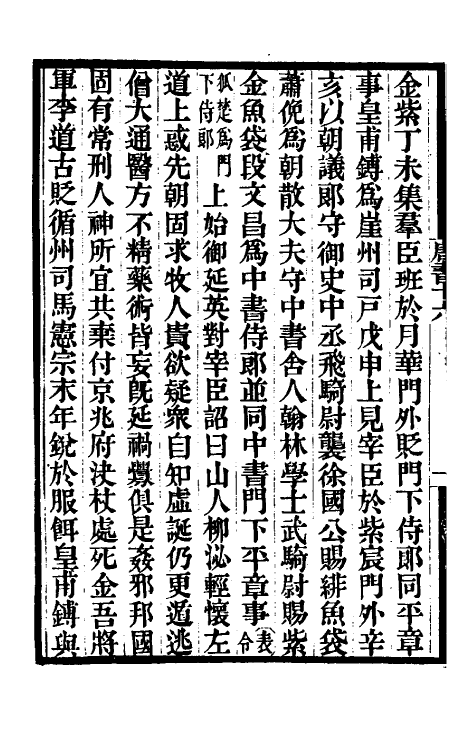 金紫丁未集羣臣班於月華門外貶門下侍郎同平章
事皇甫鎛爲崖州司戶戊申上見宰臣於紫宸門外辛
亥以朝議郎守御史中丞飛騎尉襲徐國公賜緋魚袋
蕭俛爲朝散大夫守中書舍人翰林學士武騎尉賜紫
金魚袋段文昌爲中書侍郎並同中書門下平章事令
狐楚爲門
下侍郎上始御延英對宰臣詔曰山人柳泌輕懷左
道上惑先朝固求牧人貴欲疑衆自知虛誕仍更遁逃
僧大通醫方不精藥術皆妄旣延禍釁俱是姦邪邦國
固有常刑人神所宜共棄付京兆府決杖處死金吾將
軍李道古貶循州司馬憲宗末年銳於服餌皇甫鎛與